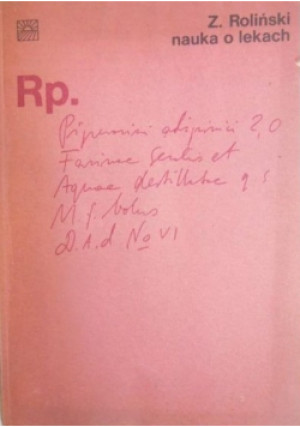 Z. Roliński
nauka o lekach
Rp.
adipinici 2,0
Farinae Secalis et
Aquae destillatae q s
M. f. bolus
D.t.d No VI